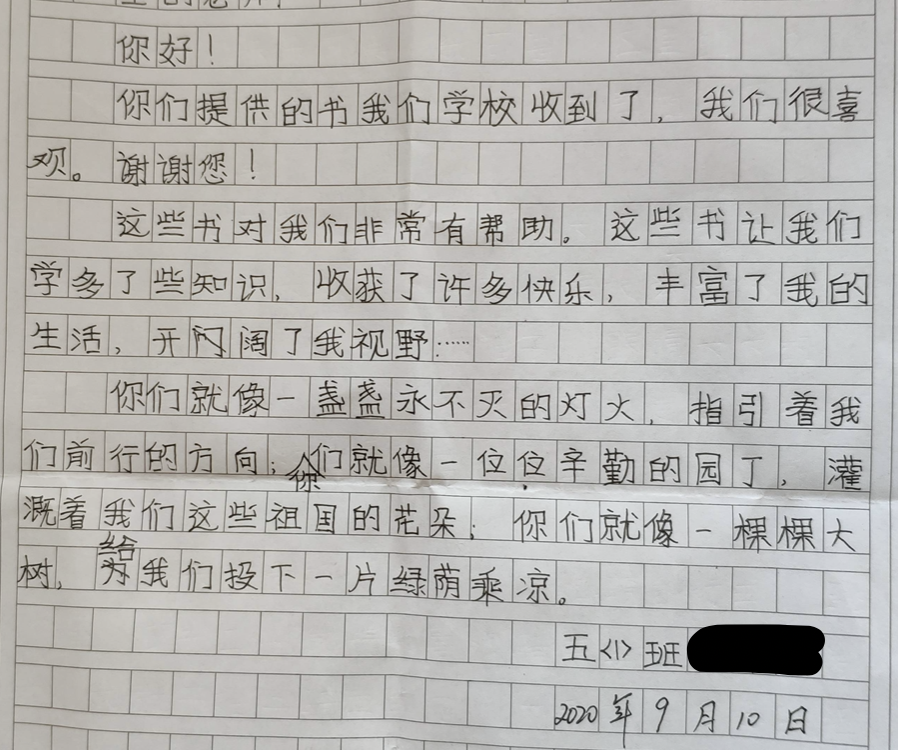 你好！
你们提供的书我们学校收到了，我们很喜
欢。谢谢您！
这些书对我们非常有帮助。这些书让我们
学多了些知识，收获了许多快乐，丰富了我的
生活，开闪阔了我视野……
你们就像一盏盏永不灭的灯火，指引着我
们前行的方向；你们就像一位位辛勤的园丁，灌
溉着我们这些祖国的花朵；你们就像一棵棵大
树，给我们投下一片绿荫乘凉。
五<1>班
2020年9月10日